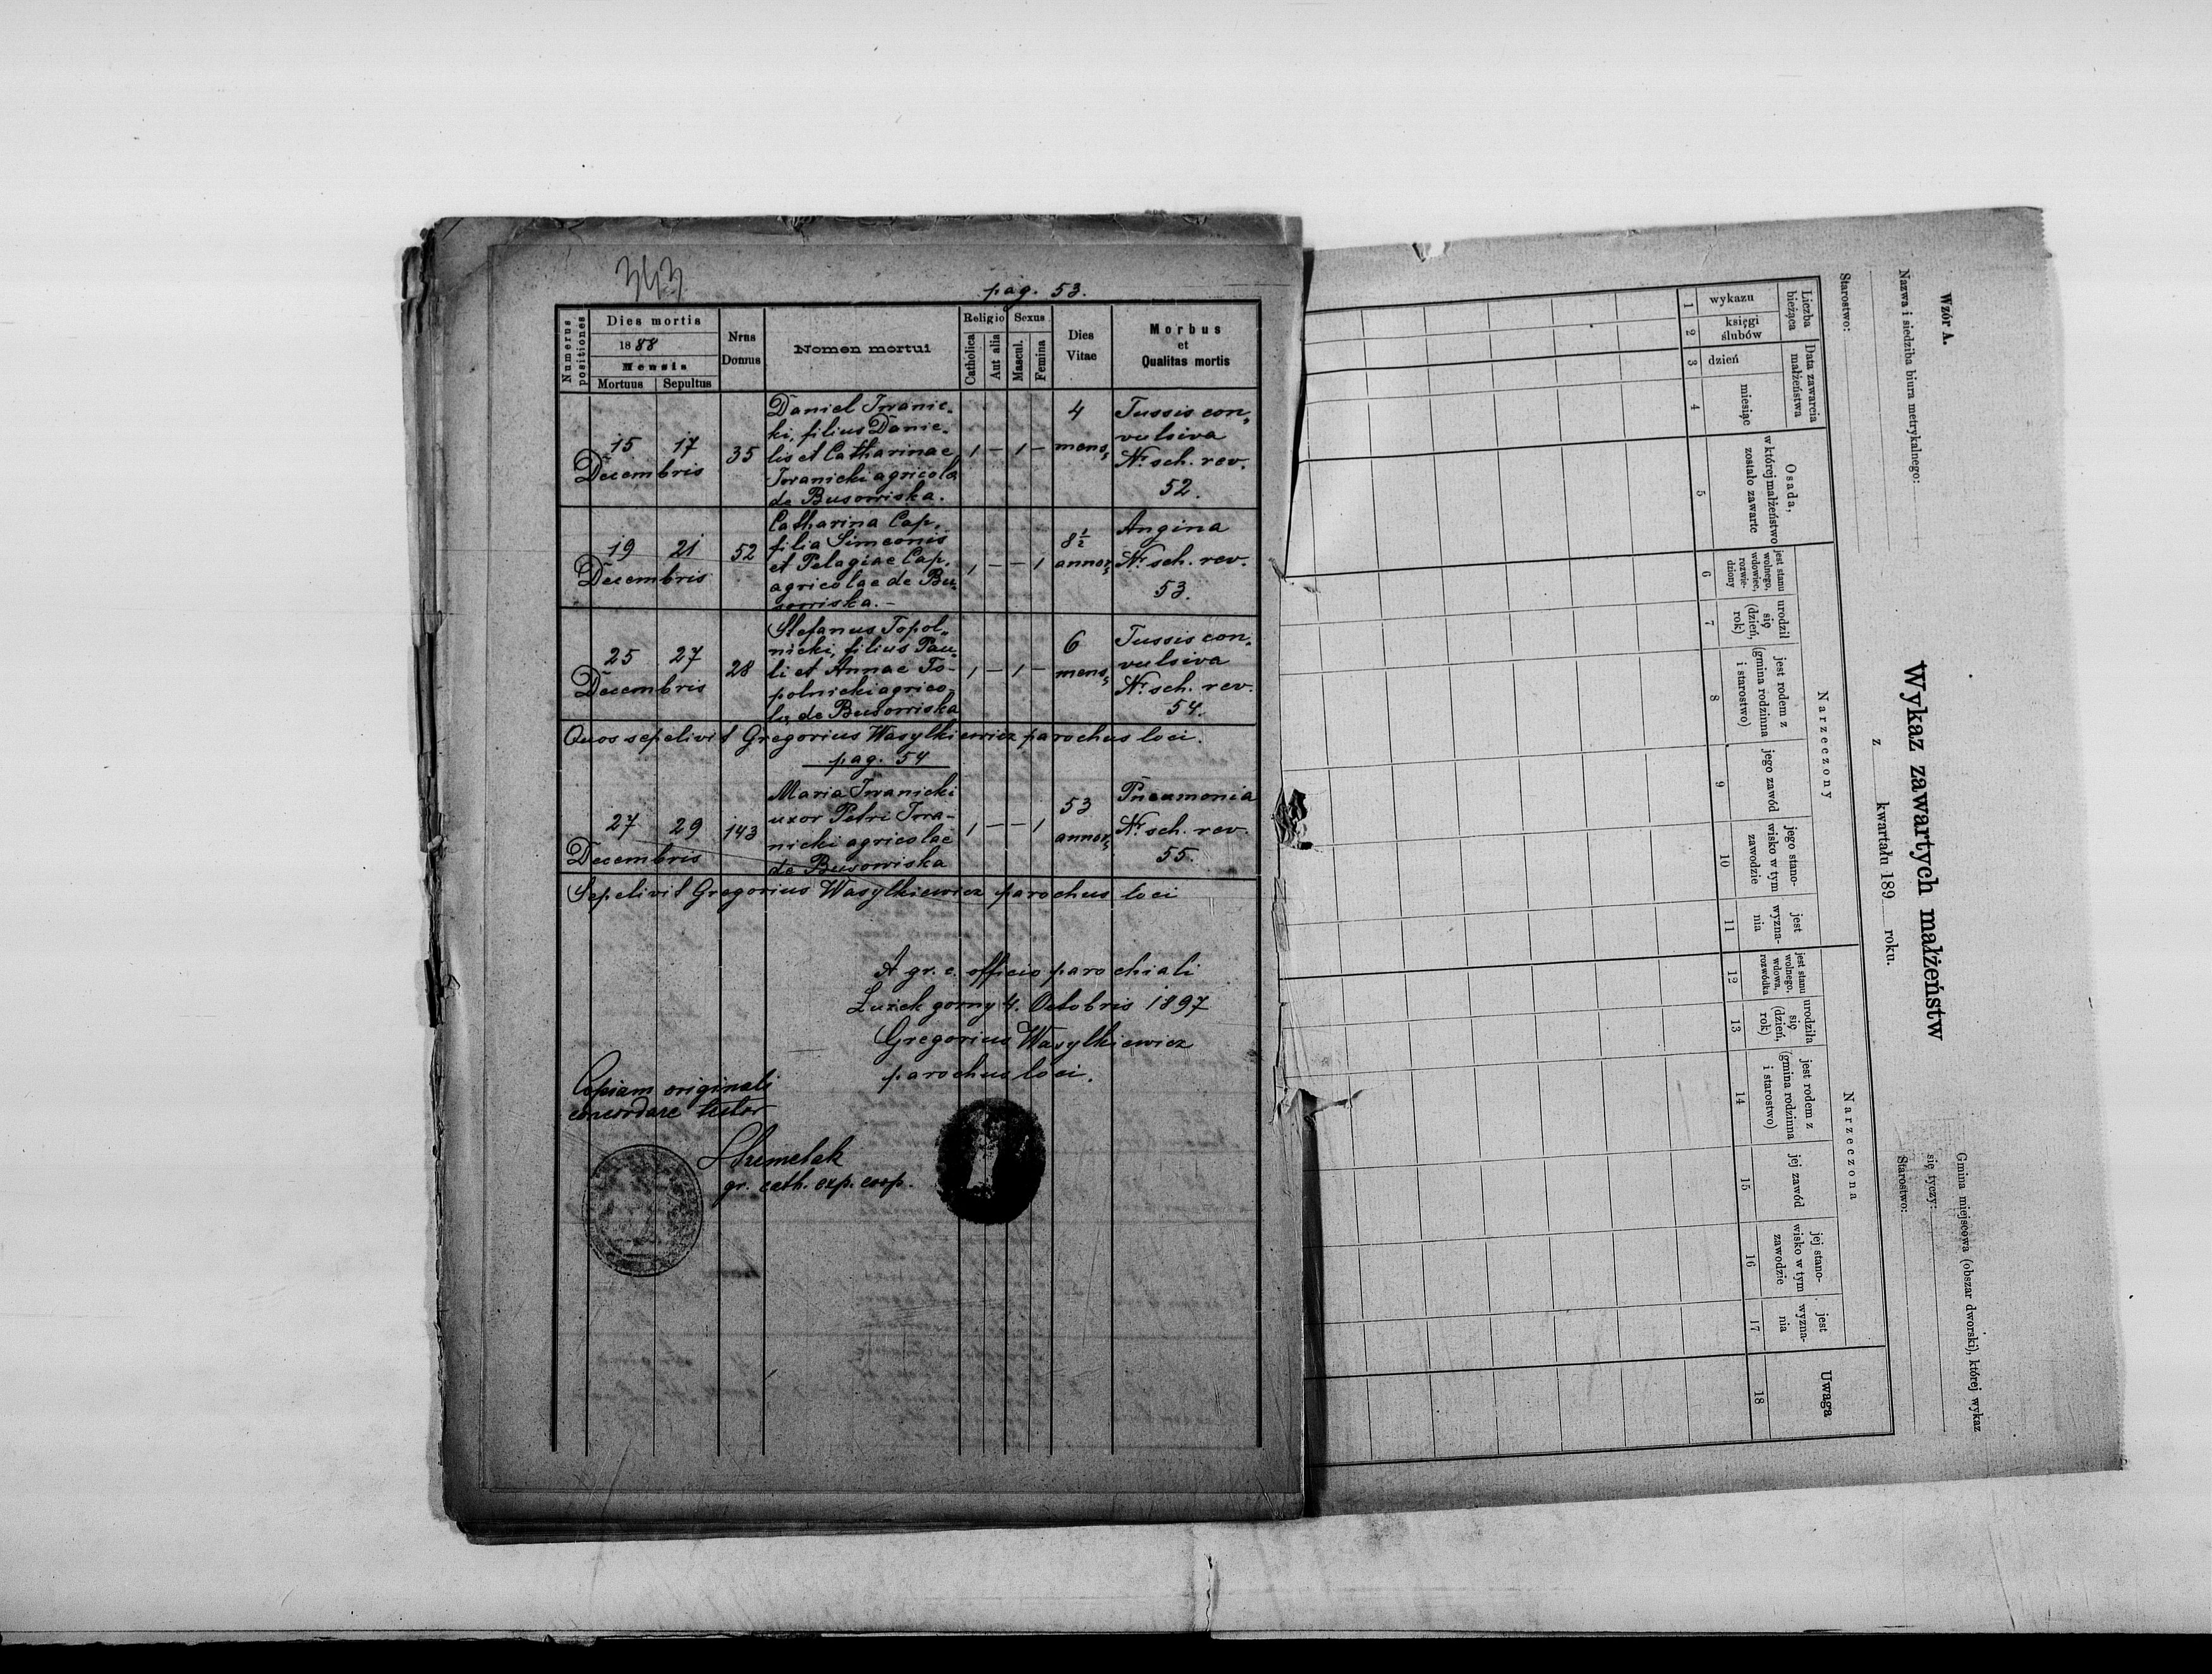 343
pag. 53.
Numerus positiones
Dies mortis
1888
Mensis
Mortuus
Sepultus
Nrus Domus
Nomen mortui
Religio
Catholica
Aut alia
Sexus
Mascul.
Femina
Dies Vitae
Morbus
et
Qualitas mortis
15 17
Decembris
35
Daniel Iwanic-
ki, filius Danie-
lis et Catharinae
Iwanicki agricola
de Busowiska.
1 — 1 —
4
mens,
Tussis con„
vulsiva
Nr. sch. rev.
52.
19 21
Decembris
52
Catharina Cap,
filia Simeonis
et Pelagiae Cap,
agricolae de Bu„
sowiska. —
1 — — 1
8½
annor,
Angina
Nr. sch. rev.
53.
25 27
Decembris
28
Stefanus Topol„
nicki, filius Pau„
li et Annae To-
polnicki agrico-
la, de Busowiska
1 — 1 —
6
mens,
Tussis con„
vulsiva
Nr. sch. rev.
54.
Quos sepelivit Gregorius Wasylkiewicz parochus loci.
pag. 54
27 29
Decembris
143
Maria Iwanicki
uxor Petri Iwa-
nicki agricolae
de Busowiska
1 — — 1
53
annor,
Pneumonia
Nr. sch. rev.
55.
Sepelivit Gregorius Wasylkiewicz parochus loci
A gr. c. officio parochiali
Łużek gorny 4. Octobris 1897
Gregorius Wasylkiewicz
parochus loci.
Copiam originali
concordare testor
gr. cath. exp. coop.
Wzór A.
Nazwa i siedziba biura metrykalnego:
Starostwo:
Wykaz zawartych małżeństw
z kwartału 189 roku.
Gmina miejscowa (obszar dworski), której wykaz
się tyczy:
Starostwo:
Liczba bieżąca
wykazu
księgi ślubów
Data zawarcia małżeństwa
dzień
miesiąc
Osada,
w której małżeństwo
zostało zawarte
Narzeczony
jest stanu
wolnego,
wdowiec,
rozwie-
dziony
urodził
się
(dzień,
rok)
jest rodem z
(gmina rodzinna
i starostwo)
jego zawód
jego stano-
wisko w tym
zawodzie
jest
wyzna-
nia
Narzeczona
jest stanu
wolnego,
wdowa,
rozwódka
urodziła
się
(dzień,
rok)
jest rodem z
(gmina rodzinna
i starostwo)
jej zawód
jej stano-
wisko w tym
zawodzie
jest
wyzna-
nia
Uwaga
1 2 3 4 5 6 7 8 9 10 11 12 13 14 15 16 17 18